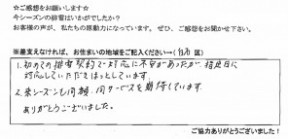 ☆ご感想をお願いします☆
今シーズンの排雪はいかがでしたか？
お客様の声が、私たちの原動力になっています。ぜひ、ご感想をお聞かせ下さい。
※差支えなければ、お住まいの地域をご記入ください→( 区)
1.初めての排雪契約で対応に不安があったが、指定日に
対応していただきほっとしています。
2.来シーズンも同様、同サービスを期待しています。
ありがとうございました。
ご協力ありがとうございました！